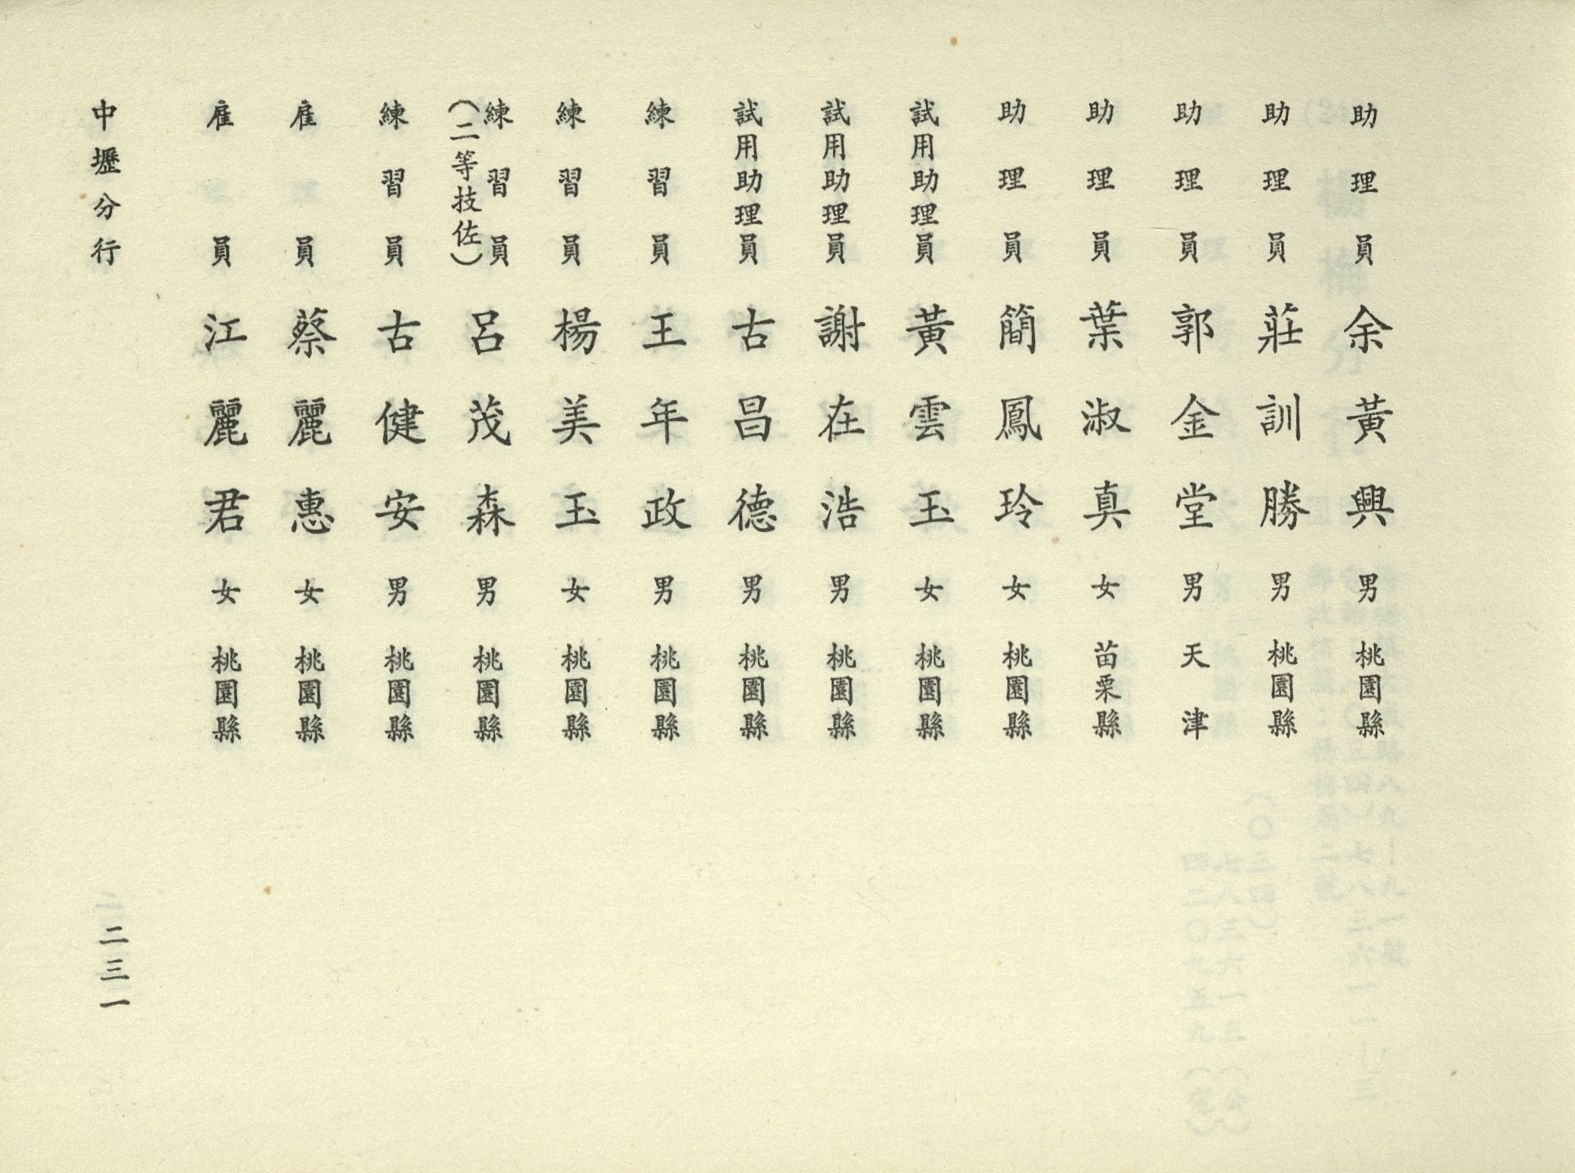 助理員 余黃興 男 桃園縣
助理員 莊訓勝 男 桃園縣
助理員 郭金堂 男 天津
助理員 葉淑真 女 苗栗縣
助理員 簡鳳玲 女 桃園縣
試用助理員 黃雲玉 女 桃園縣
試用助理員 謝在浩 男 桃園縣
試用助理員 古昌德 男 桃園縣
練習員 王年政 男 桃園縣
練習員 楊美玉 女 桃園縣
練習員(二等技佐) 呂茂森 男 桃園縣
練習員 古健安 男 桃園縣
雇員 蔡麗惠 女 桃園縣
雇員 江麗君 女 桃園縣
中壢分行
二三一